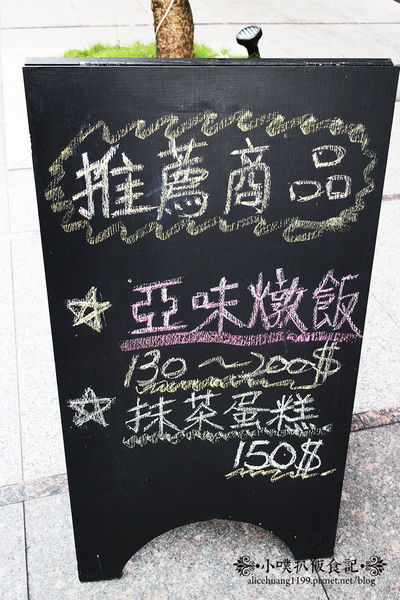 推薦商品
亞味燉飯
130～200$
抹茶蛋糕
150$
小噗扒飯食記
alicehuang1199.pixnet.net/blog